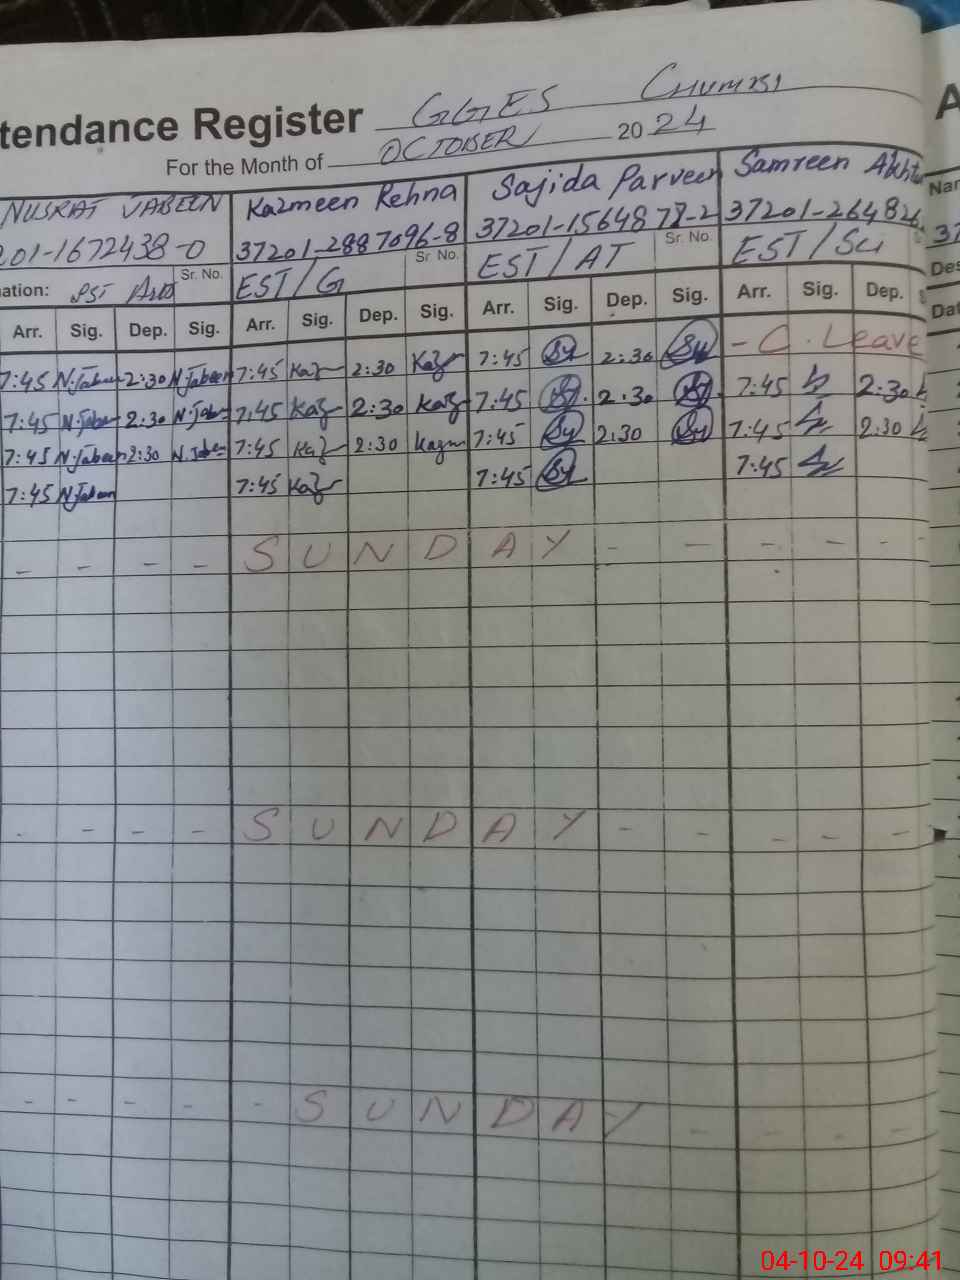 tendance Register GGES CHUMBI
For the Month of OCTOBER 2024
NUSRAT JABEEN Kazmeen Rehna Sajida Parveen Samreen Akhta
201-1672438-0 37201-2887096-8 37201-1564878-2 37201-26482
Sr. No. Sr. No. Sr. No.
ation: PST EST/G EST/AT EST/Sci
Arr. Sig. Dep. Sig. Arr. Sig. Dep. Sig. Arr. Sig. Dep. Sig. Arr. Sig. Dep.
7:45 N.Jabeen 2:30 N.Jabeen 7:45 Kaz 2:30 Kaz 7:45 2:30 - C. Leave
7:45 N.Jabe 2:30 N.Jabe 7:45 Kaz 2:30 Kaz 7:45 2:30 7:45 2:30
7:45 N.Jabeen 2:30 N.Jabe 7:45 Kaz 2:30 Kazm 7:45 2:30 7:45 2:30
7:45 N.Jabeen 7:45 Kaz 7:45 7:45
- - - - S U N D A Y - - - - - -
- - - - S U N D A Y - - - - -
- - - - - S U N D A Y - - - -
A
Nar
37
Des
Dat
04-10-24 09:41